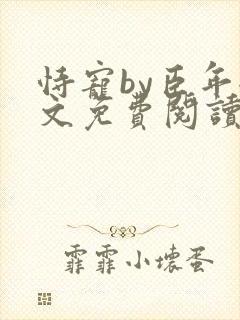 恃寵by臣年
文免費閱讀
霏霏小壞蛋